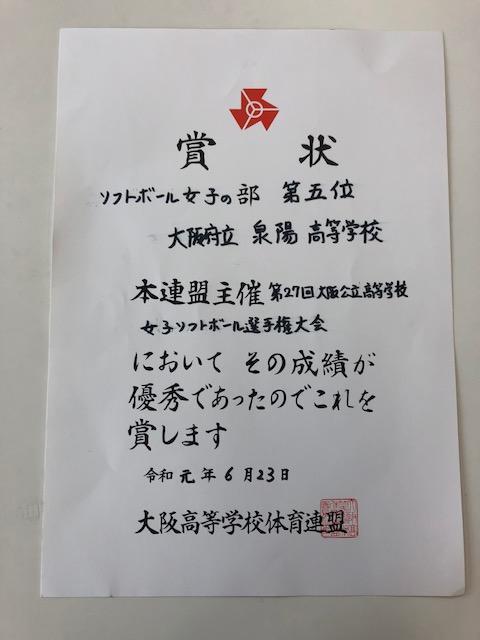 賞状
ソフトボール女子の部 第五位
大阪府立 泉陽 高等学校
本連盟主催 第27回大阪公立高等学校
女子ソフトボール選手権大会
において その成績が
優秀であったのでこれを
賞します
令和 元 年 6 月 23 日
大阪高等学校体育連盟